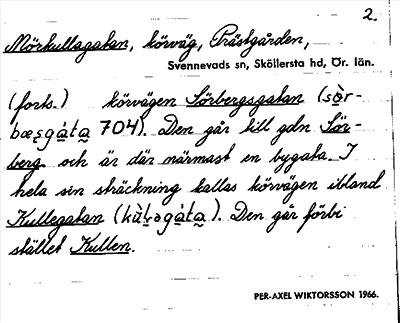 2.
Mörkullagatan, körväg, Prästgården,
Svennevads sn, Sköllersta hd, Ör. län.
(forts.) körvägen Sörbergsgatan (sö̀r-
bæs̨gáta 704). Den går till gdn Sör-
berg och är där närmast en bygata. I
hela sin sträckning kallas körvägen ibland
Kullagatan (kùḷəgáta). Den går förbi
stället Kullen.
PER-AXEL WIKTORSSON 1966.